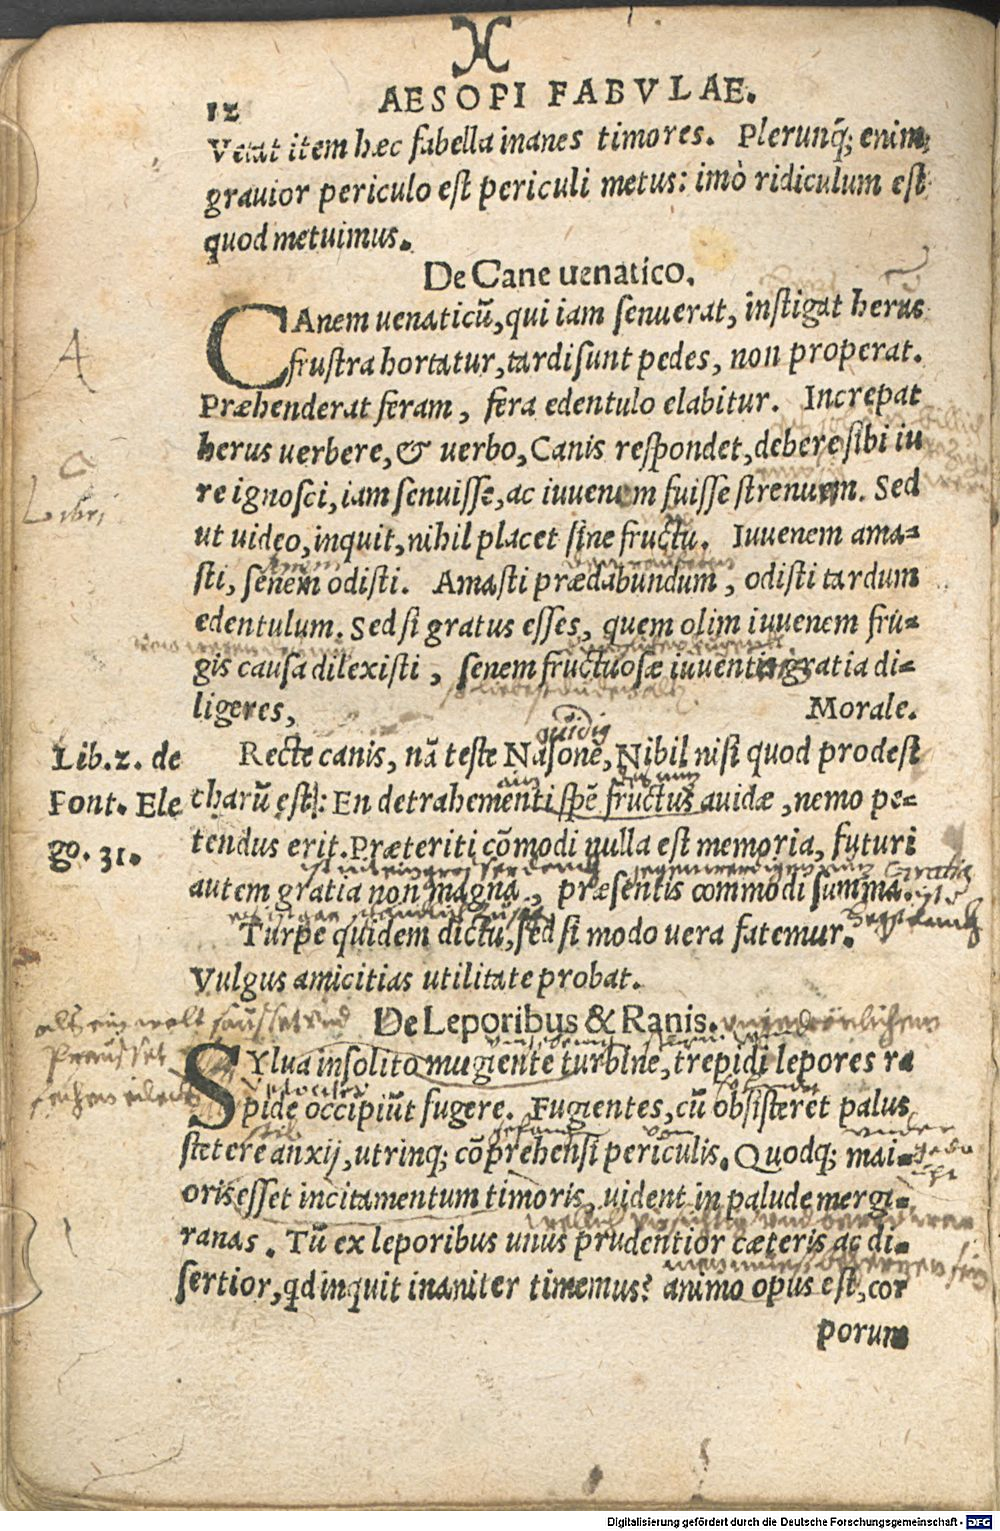 12 AESOPI FABVLAE.
Vetat item hæc fabella inanes timores. Plerunq̃; enim
grauior periculo est periculi metus: imò ridiculum est
quod metuimus.
De Cane uenatico.
CAnem uenaticũ, qui iam senuerat, instigat herus
frustra hortatur, tardi sunt pedes, non properat.
Præhenderat feram, fera edentulo elabitur. Increpat
herus uerbere, & uerbo, Canis respondet, debere sibi iu
re ignosci, iam senuisse, ac iuuenem fuisse strenuum. Sed
ut uideo, inquit, nihil placet sine fructu. Iuuenem ama=
sti, senem odisti. Amasti prædabundum, odisti tardum
edentulum. Sed si gratus esses, quem olim iuuenem fru=
gis causa dilexisti, senem fructuosæ iuuentæ gratia di=
ligeres, Morale.
Lib. 2. de
Font. Ele
go. 31.
quidig
Recte canis, nã teste Nasone, Nihil nisi quod prodest
charũ est: En detrahementi spẽ fructus auidæ, nemo pe=
tendus erit. Præteriti cõmodi nulla est memoria, futuri
autem gratia non magna, præsentis commodi summa.
Turpe quidem dictu, sed si modo uera fatemur.
Vulgus amicitias utilitate probat.
De Leporibus & Ranis.
SYlua insolito mugiente turbine, trepidi lepores ra
pide occipiũt fugere. Fugientes, cũ obsisteret palus
stetere anxij, utrinq; cõprehensi periculis. Quodq; mai=
oris esset incitamentum timoris, uident in palude mergi=
ranas. Tũ ex leporibus unus prudentior cæteris ac di=
sertior, qd inquit inaniter timemus? animo opus est, cor
porum
Libri
Digitalisierung gefördert durch die Deutsche Forschungsgemeinschaft - DFG